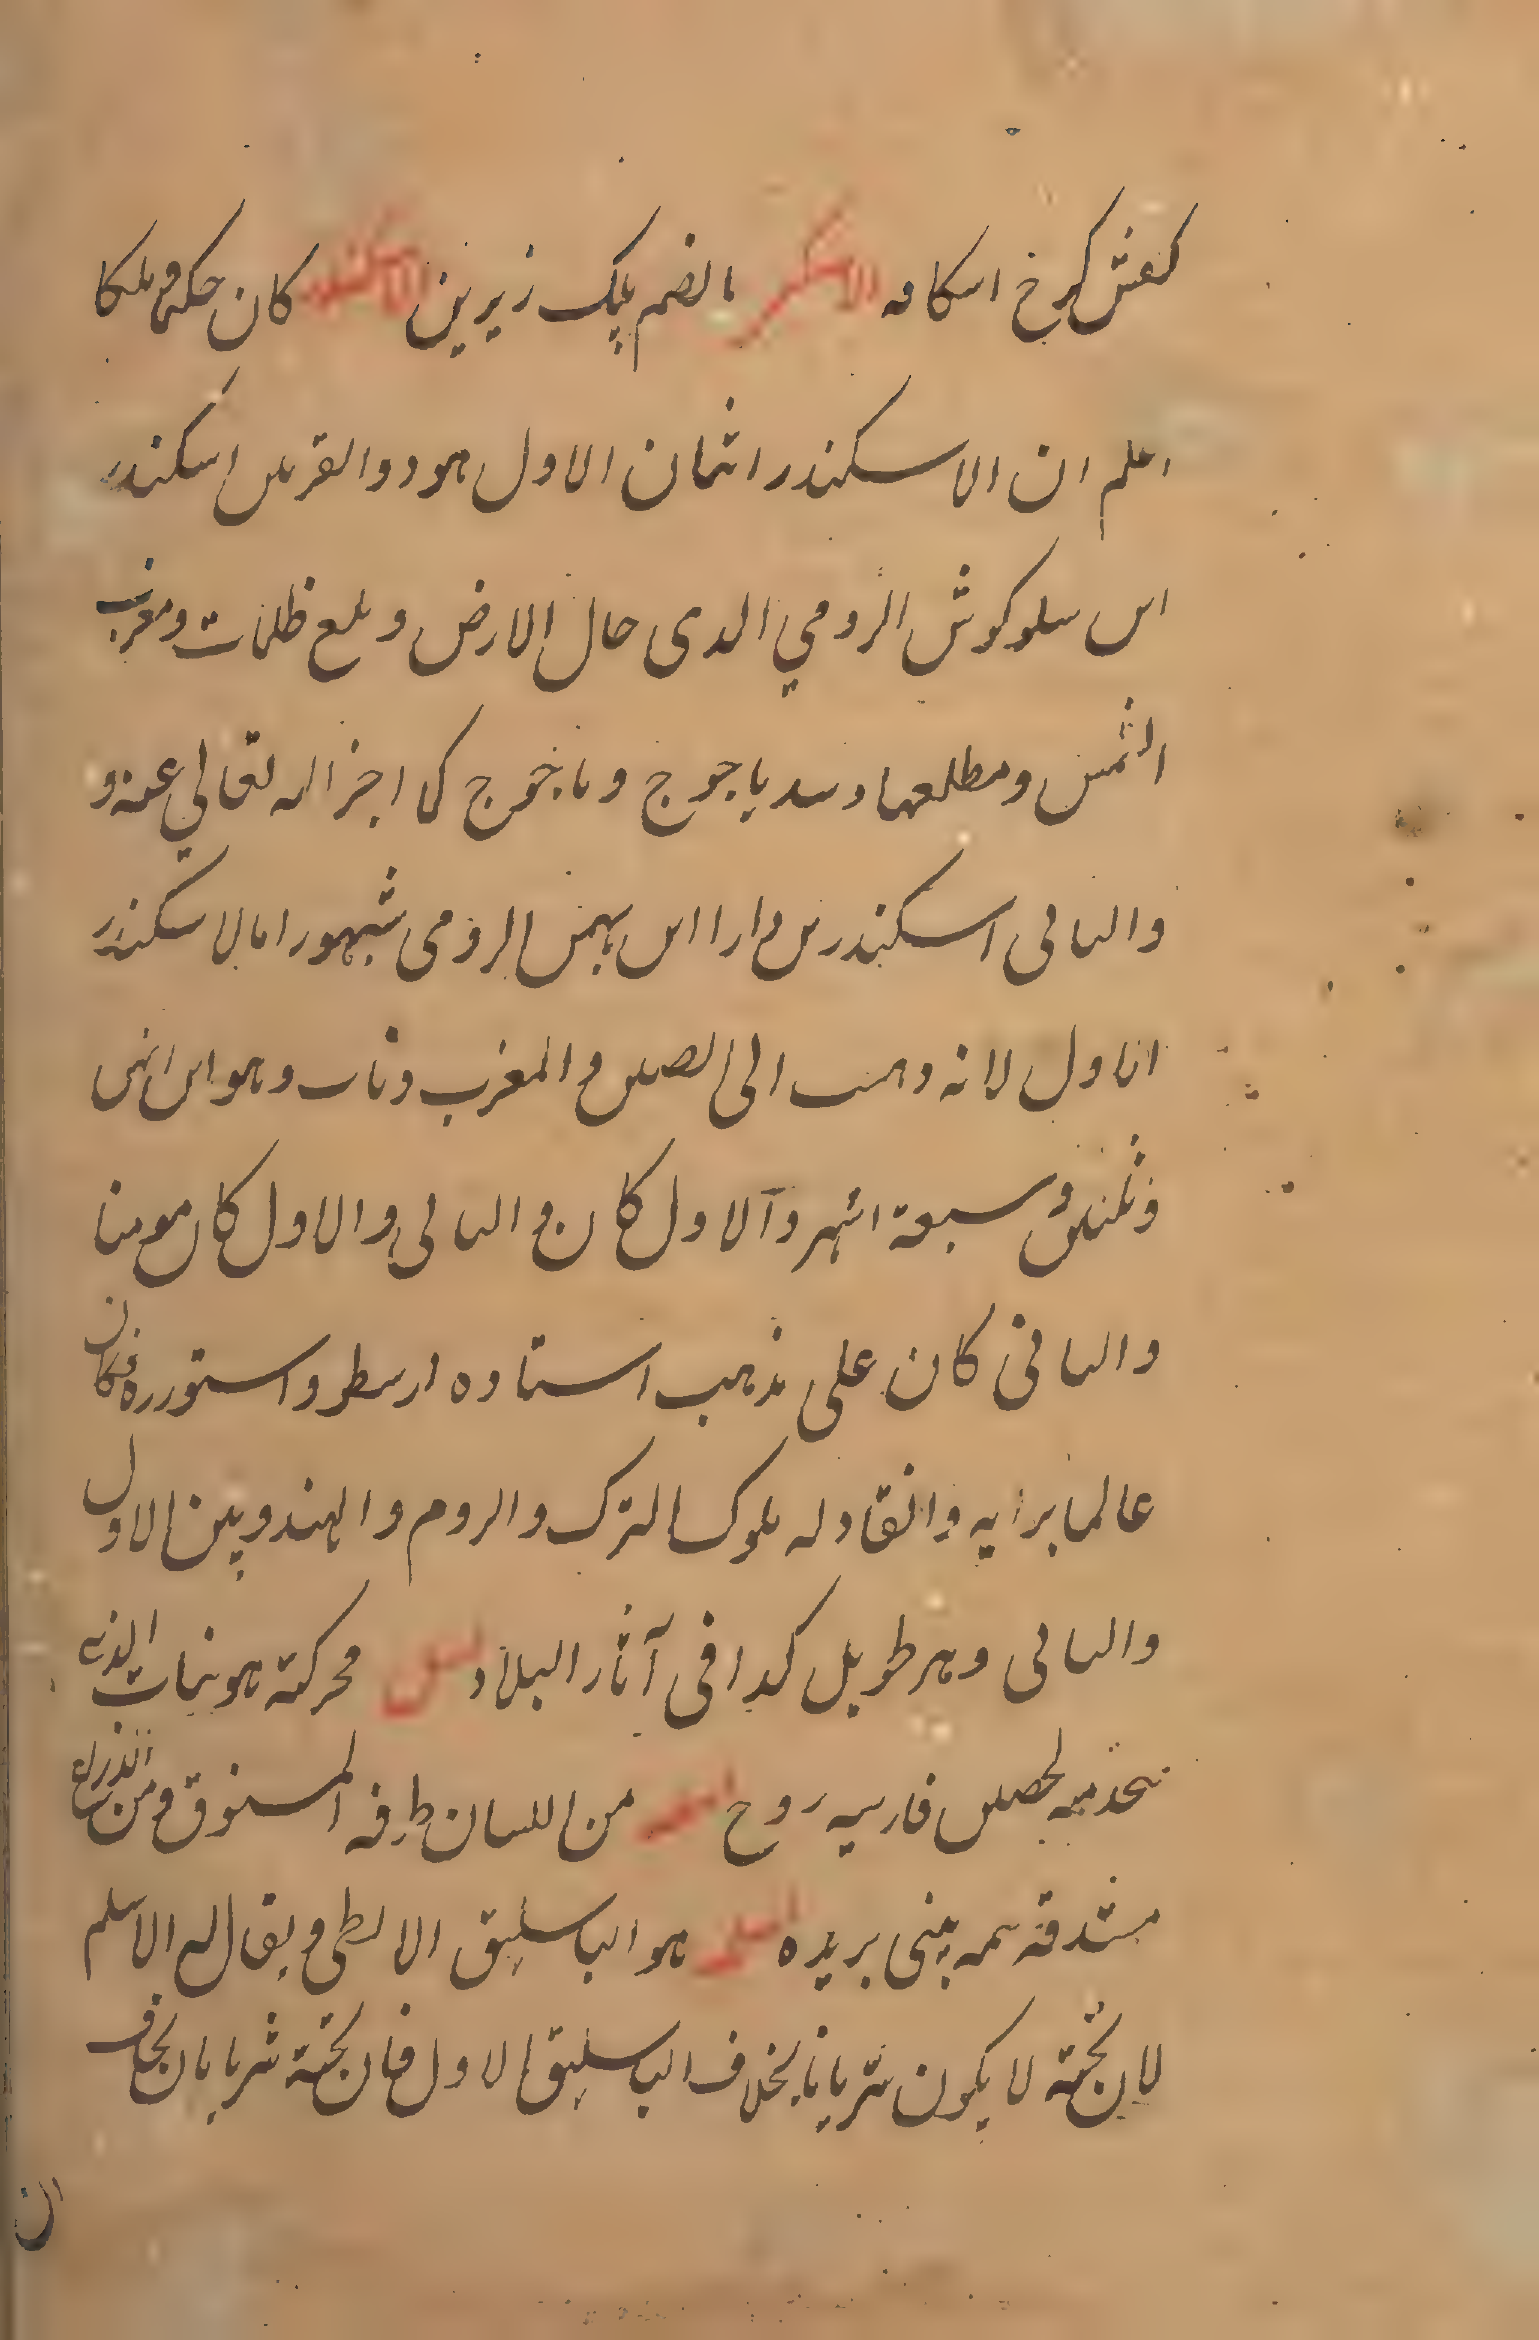 كفش كرخ اسكافه الاسكر بالضم پلك زيرين الاسكندر كان حكيم ملكا
اعلم ان الاسكندر اثمان الاول هو ذوالقرنين اسكندر
ابن سلوكوش الرومي الذى جال الارض و بلغ ظلمات و مغرب
الشمس و مطلعها و سد ياجوج و ماجوج كما اخبر الله تعالي عنه و
والثانى اسكندر بن دارا ابن بهمن الرومى شبهورا بالاسكندر
اناول لانه ذهب الى الصين و المغرب و مات و هو ابن اثنى
و ثلثين و سبعة اشهر و الاول كان و الثانى و الاول كان مومنا
والثانى كان على مذهب استاده ارسطو و استوزره فكان
عالما برايه و انقاد له ملوك الترك و الروم و الهند و بين الاول
والثانى دهر طويل كذا فى آثار البلاد محركة هو نبات الذى
يتخذ منه الحصير فارسيه روخ من اللسان طرفه المستوق و من الذراع
مستدقة همه بينى بريده هو الباسليق الابطى و يقال له الاسلم
لان تحته لا يكون شريانا بخلاف الباسليق الاول فان تحته شريانان بخلاف
ان